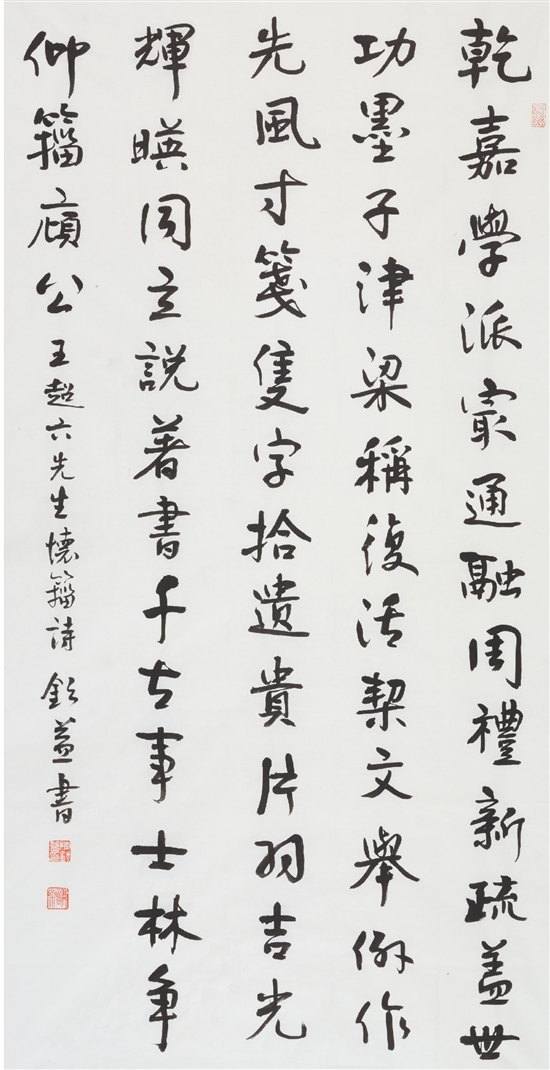 乾嘉學派冣通融周禮新疏蓋世
功墨子津梁稱復活契文舉例作
先風寸箋隻字拾遺貴片羽吉光
輝暎同立說著書千古事士林争
仰籀廎公王超六先生懷籀詩 欽益書